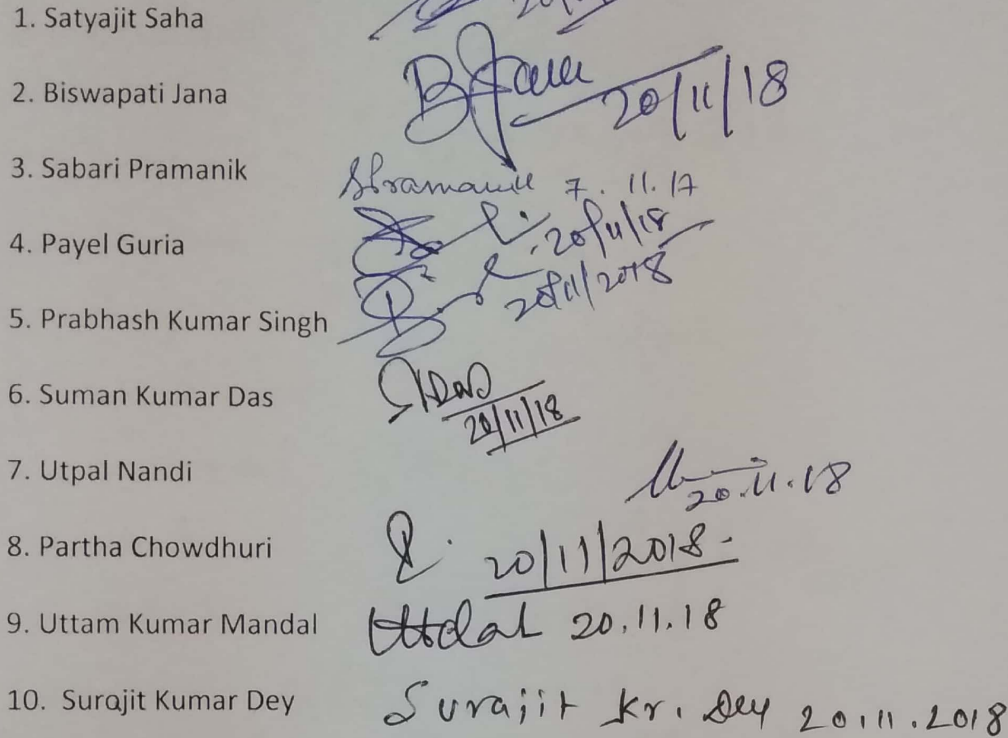 1. Satyajit Saha
2. Biswapati Jana BJana 20/11/18
3. Sabari Pramanik SPramanik 7.11.17
4. Payel Guria 20/11/18
5. Prabhash Kumar Singh 20/11/2018
6. Suman Kumar Das SKDas 20/11/18
7. Utpal Nandi 20.11.18
8. Partha Chowdhuri 20/11/2018
9. Uttam Kumar Mandal 20.11.18
10. Surajit Kumar Dey Surajit Kr. Dey 20.11.2018